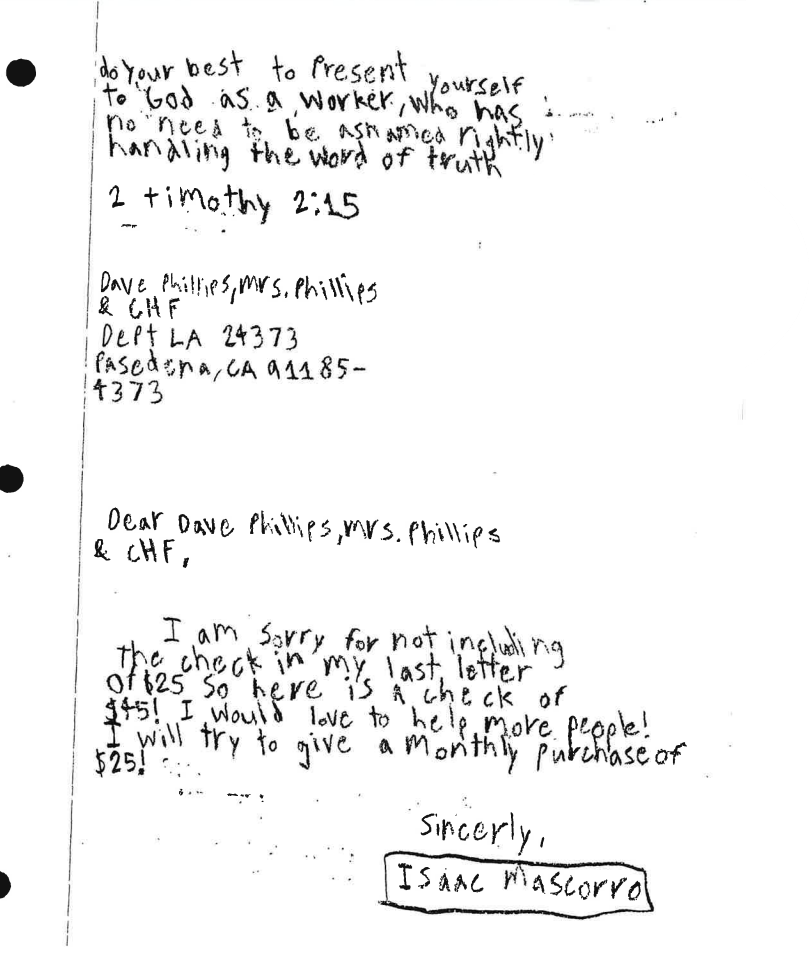 do your best to Present yourself
to God as a worker, who has
no need to be ashamed rightly
handling the word of truth
2 timothy 2:15
Dave Phillips, Mrs. Phillips
& CHF
Dept LA 24373
Pasedena, CA 91185-
4373
Dear Dave Phillips, Mrs. Phillips
& CHF,
I am sorry for not including
the check in my last letter
of $25 so here is a check of
$45! I would love to help more people!
I will try to give a monthly purchase of
$25!
Sincerly,
Isaac Mascorro